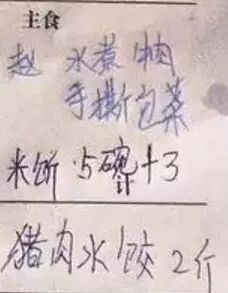 主食
赵 水煮牛肉
手撕包菜
米饭 5碗+3
猪肉水饺 2斤